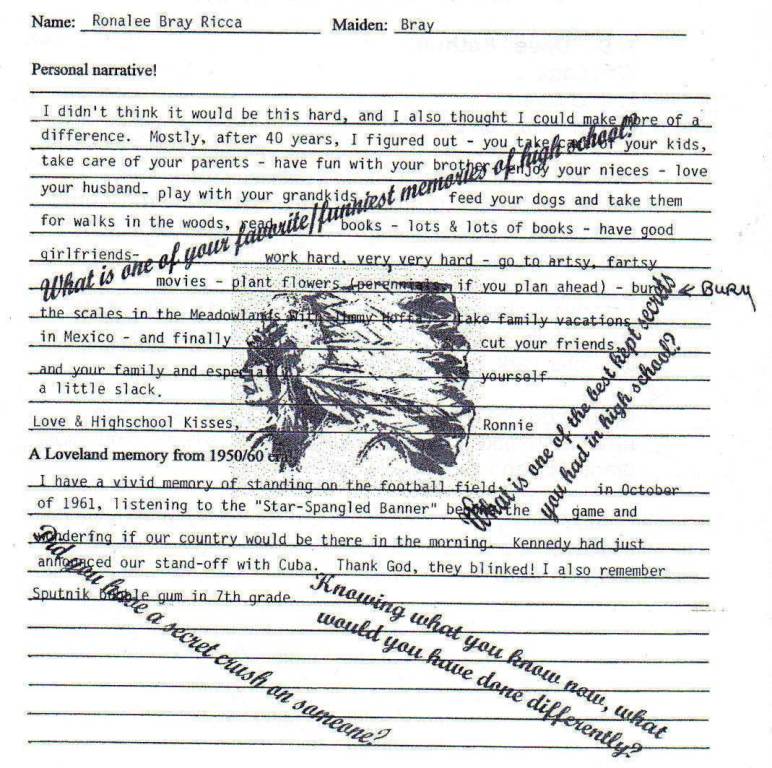 Name: Ronalee Bray Ricca Maiden: Bray
Personal narrative!
I didn't think it would be this hard, and I also thought I could make more of a
difference. Mostly, after 40 years, I figured out - you take care of your kids,
take care of your parents - have fun with your brother enjoy your nieces - love
your husband- play with your grandkids feed your dogs and take them
for walks in the woods, read books - lots & lots of books - have good
girlfriends- work hard, very very hard - go to artsy, fartsy
movies - plant flowers (perennials, if you plan ahead) - bury ← BURY
the scales in the Meadowlands with Jimmy Hoffa - take family vacations
in Mexico - and finally cut your friends
and your family and especially yourself
a little slack.
Love & Highschool Kisses, Ronnie
A Loveland memory from 1950/60 era!
I have a vivid memory of standing on the football field in October
of 1961, listening to the "Star-Spangled Banner" before the game and
wondering if our country would be there in the morning. Kennedy had just
announced our stand-off with Cuba. Thank God, they blinked! I also remember
Sputnik bubble gum in 7th grade.
What is one of your favorite/funniest memories of high school?
What is one of the best kept secrets
you had in high school?
Did you have a secret crush on someone?
Knowing what you know now, what
would you have done differently?